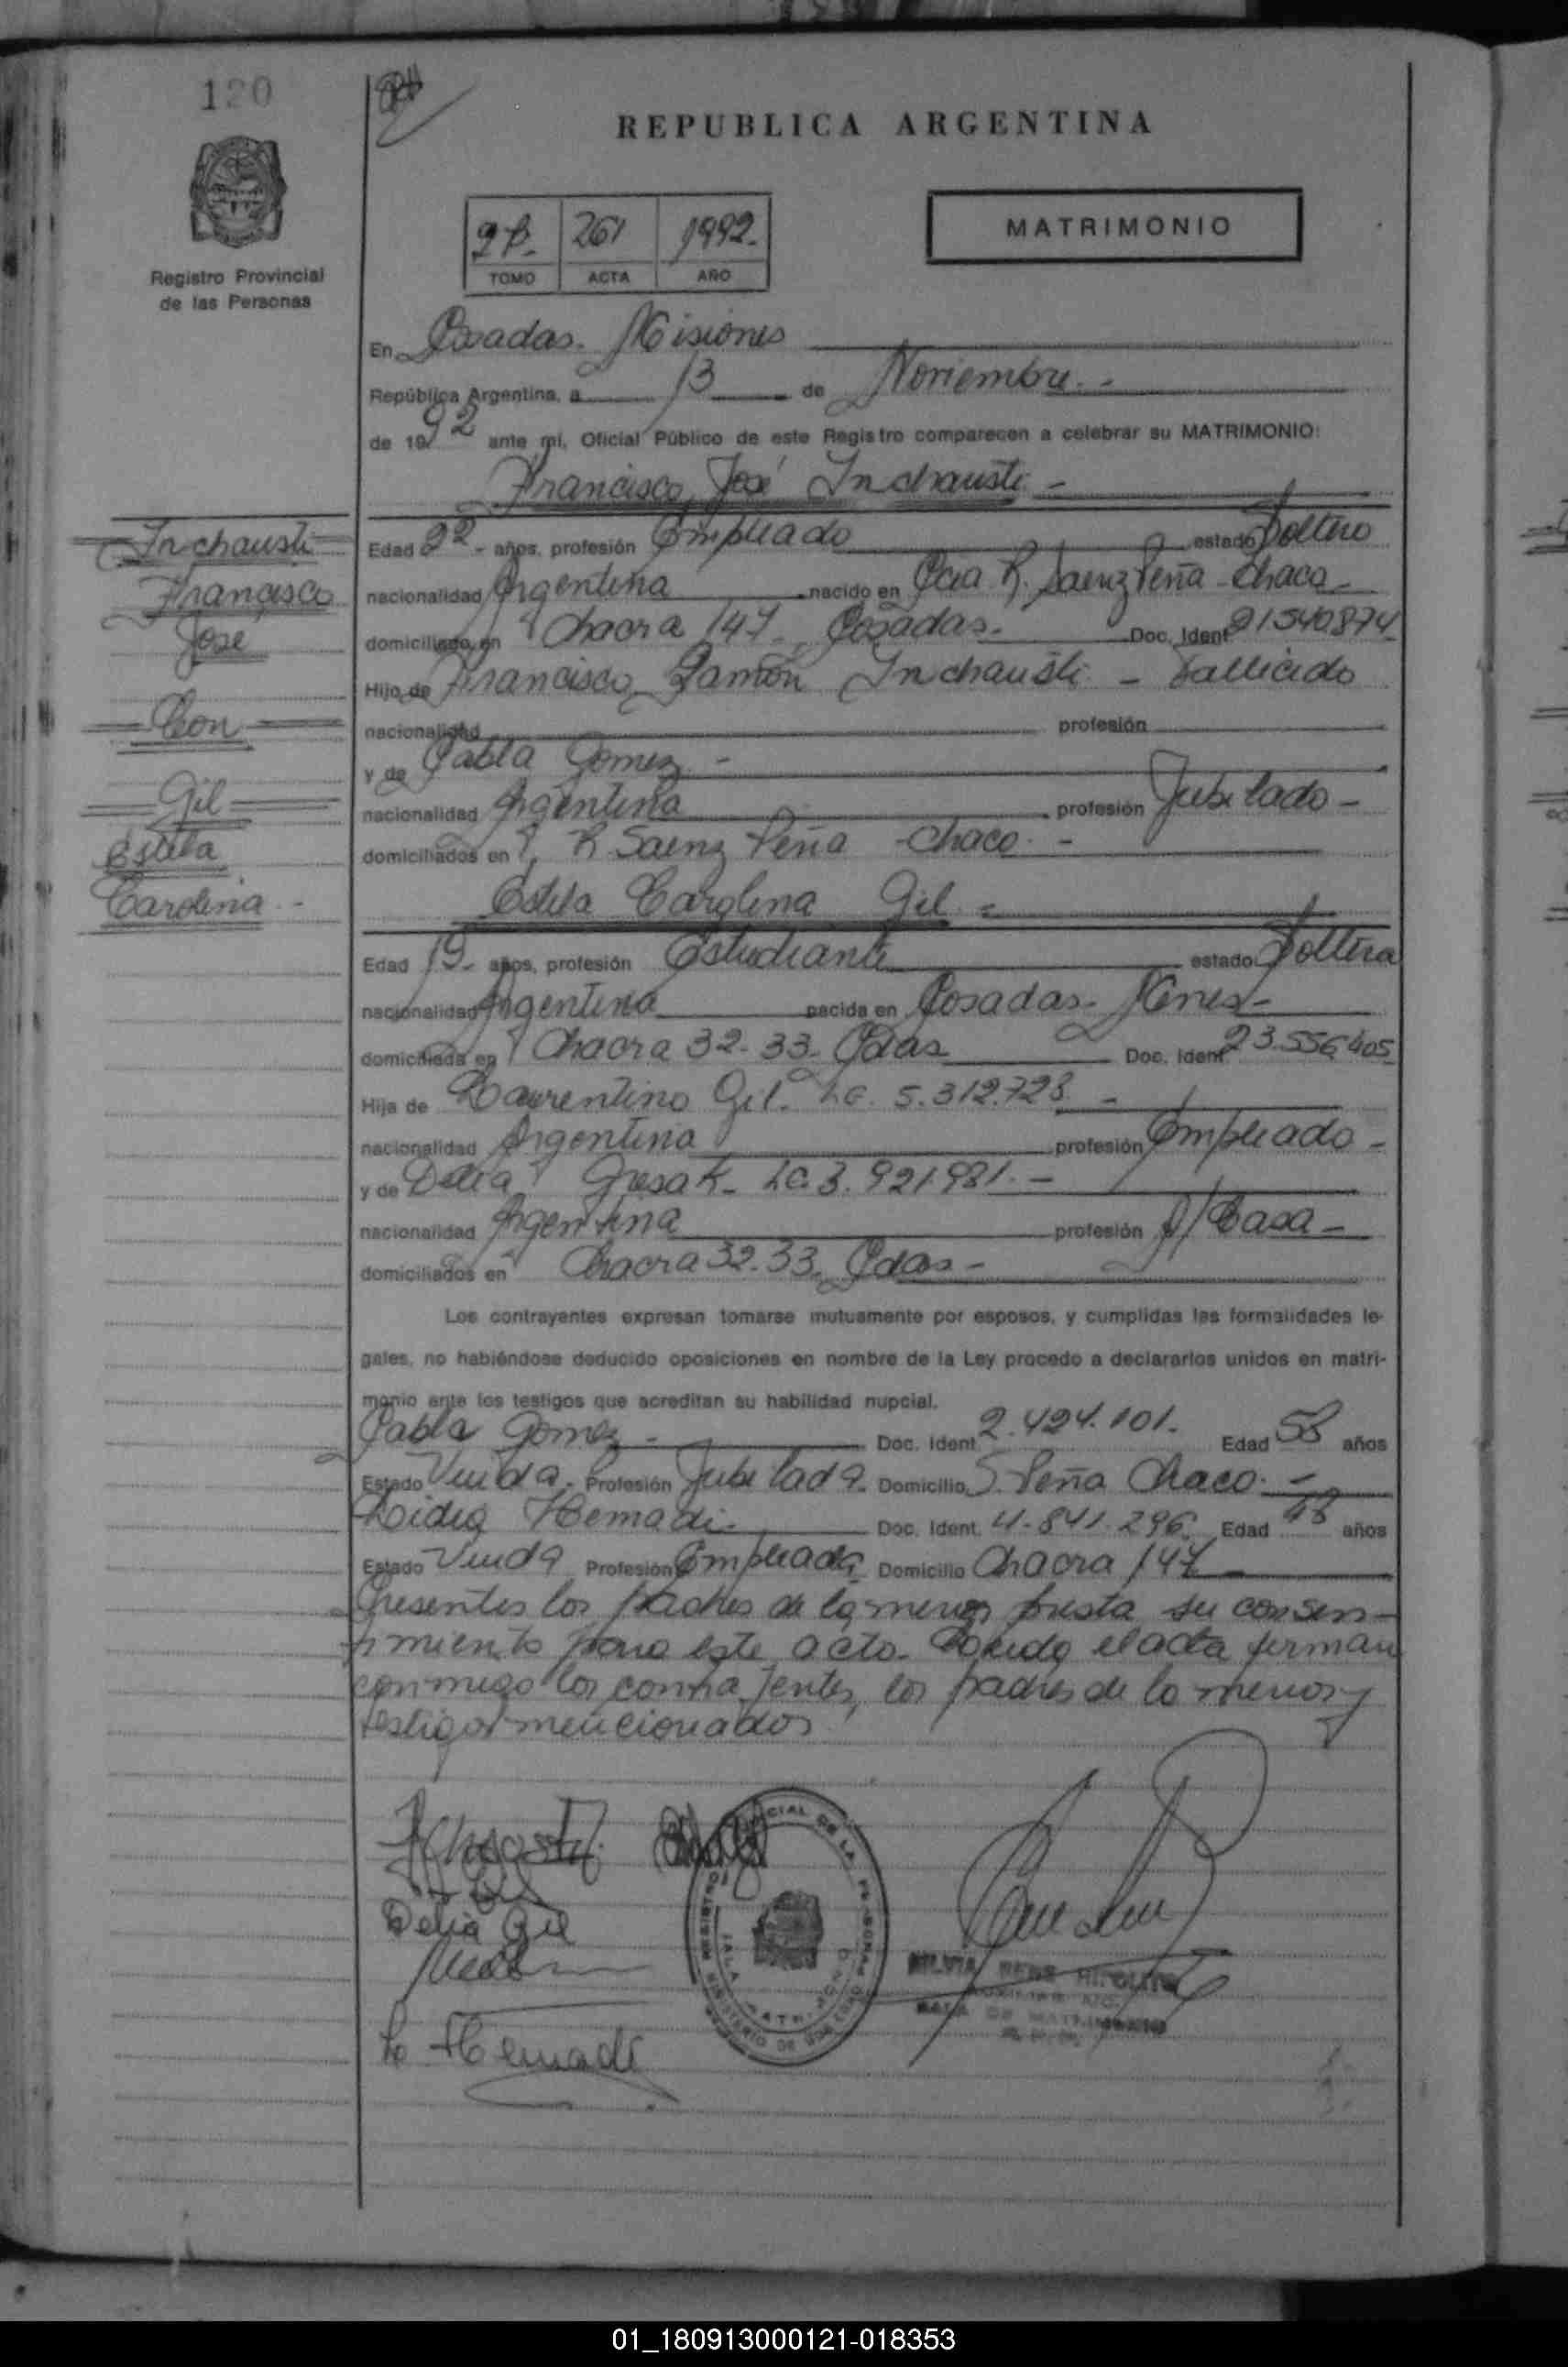 120
REPUBLICA ARGENTINA
MATRIMONIO
2º 261 1992.
TOMO ACTA AÑO
Registro Provincial
de las Personas
En Posadas. Misiones
República Argentina, a 13 de Noviembre.-
de 1992 ante mí, Oficial Público de este Registro comparecen a celebrar su MATRIMONIO:
Francisco José Inchausti -
Inchausti
Francisco
José
Con
Gil
Estela
Carolina -
Edad 22 - años, profesión Empleado estado Soltero
nacionalidad Argentina nacido en Pcia R. Saenz Peña - Chaco -
domiciliado en Chacra 147 - Posadas. Doc. Ident 21540874
Hijo de Francisco Ramón Inchausti - Fallecido
nacionalidad profesión
y de Pabla Gomez -
nacionalidad Argentina profesión Jubilado -
domiciliados en P. R Saenz Peña - Chaco. -
Estela Carolina Gil -
Edad 19 - años, profesión Estudiante estado Soltera
nacionalidad Argentina nacida en Posadas - Mnes -
domiciliada en Chacra 32-33 - Pdas Doc. Ident 23.556405
Hija de Laurentino Gil. L.E. 5.312.728 -
nacionalidad Argentina profesión Empleado -
y de Delia Gresak - LC. 3.921981. -
nacionalidad Argentina profesión S/ Casa -
domiciliados en Chacra 32-33 - Pdas -
Los contrayentes expresan tomarse mutuamente por esposos, y cumplidas las formalidades le-
gales, no habiéndose deducido oposiciones en nombre de la Ley procedo a declararlos unidos en matri-
monio ante los testigos que acreditan su habilidad nupcial.
Pabla Gomez - Doc. Ident 2.424.101. Edad 58 años
Estado Viuda - Profesión Jubilada Domicilio S. Peña Chaco. -
Lidia Hemadi - Doc. Ident. 4.841.296 Edad 48 años
Estado Viuda Profesión Empleada Domicilio Chacra 147
Presentes los padres de la menor presta su consen-
timiento para este acto. Leida el acta firman
conmigo los contrayentes, los padres de la menor y
testigos mencionados
Delia Gil
L. Hemadi
SALA DE MATRIMONIO
01_180913000121-018353